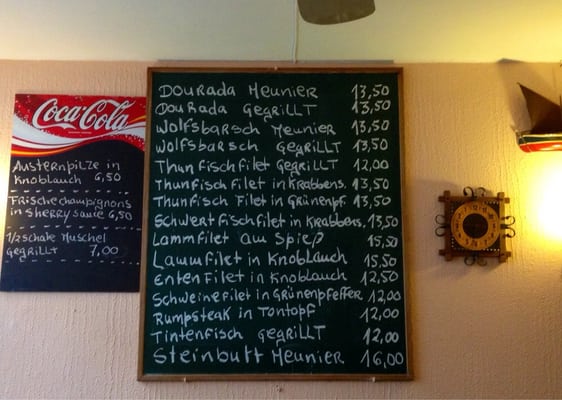 Coca-Cola
Austernpilze in
Knoblauch 6,50
Frische champignons
in sherry sauce 6,50
1/2 schale Muschel
gegrillt 7,00
Dourada Meunier 13,50
Dourada Gegrillt 13,50
Wolfsbarsch Meunier 13,50
Wolfsbarsch Gegrillt 13,50
Thunfischfilet Gegrillt 12,00
Thunfischfilet in Krabbens. 13,50
Thunfisch Filet in Grünenpf. 13,50
Schwertfischfilet in Krabbens. 13,50
Lammfilet am Spieß 15,50
Lammfilet in Knoblauch 15,50
Enten Filet in Knoblauch 12,50
Schweinefilet in Grünenpfeffer 12,00
Rumpsteak in Tontopf 12,00
Tintenfisch Gegrillt 12,00
Steinbutt Meunier 16,00